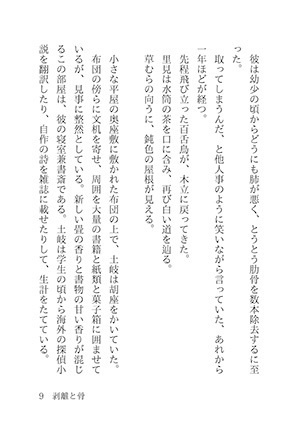 彼は幼少の頃からどうにも肺が悪く、とうとう肋骨を数本除去するに至
った。
取ってしまうんだ、と他人事のように笑いながら言っていた、あれから
一年ほどが経つ。
先程飛び立った百舌鳥が、木立に戻ってきた。
里見は水筒の茶を口に含み、再び白い道を辿る。
草むらの向うに、鈍色の屋根が見える。
小さな平屋の奥座敷に敷かれた布団の上で、土岐は胡座をかいていた。
布団の傍らに文机を寄せ、周囲を大量の書籍と紙類と菓子箱に囲ませて
いるが、見事に整然としている。新しい畳の香りと書物の甘い香りが混じ
るこの部屋は、彼の寝室兼書斎である。土岐は学生の頃から海外の探偵小
説を翻訳したり、自作の詩を雑誌に載せたりして、生計をたてている。
9 剥離と骨